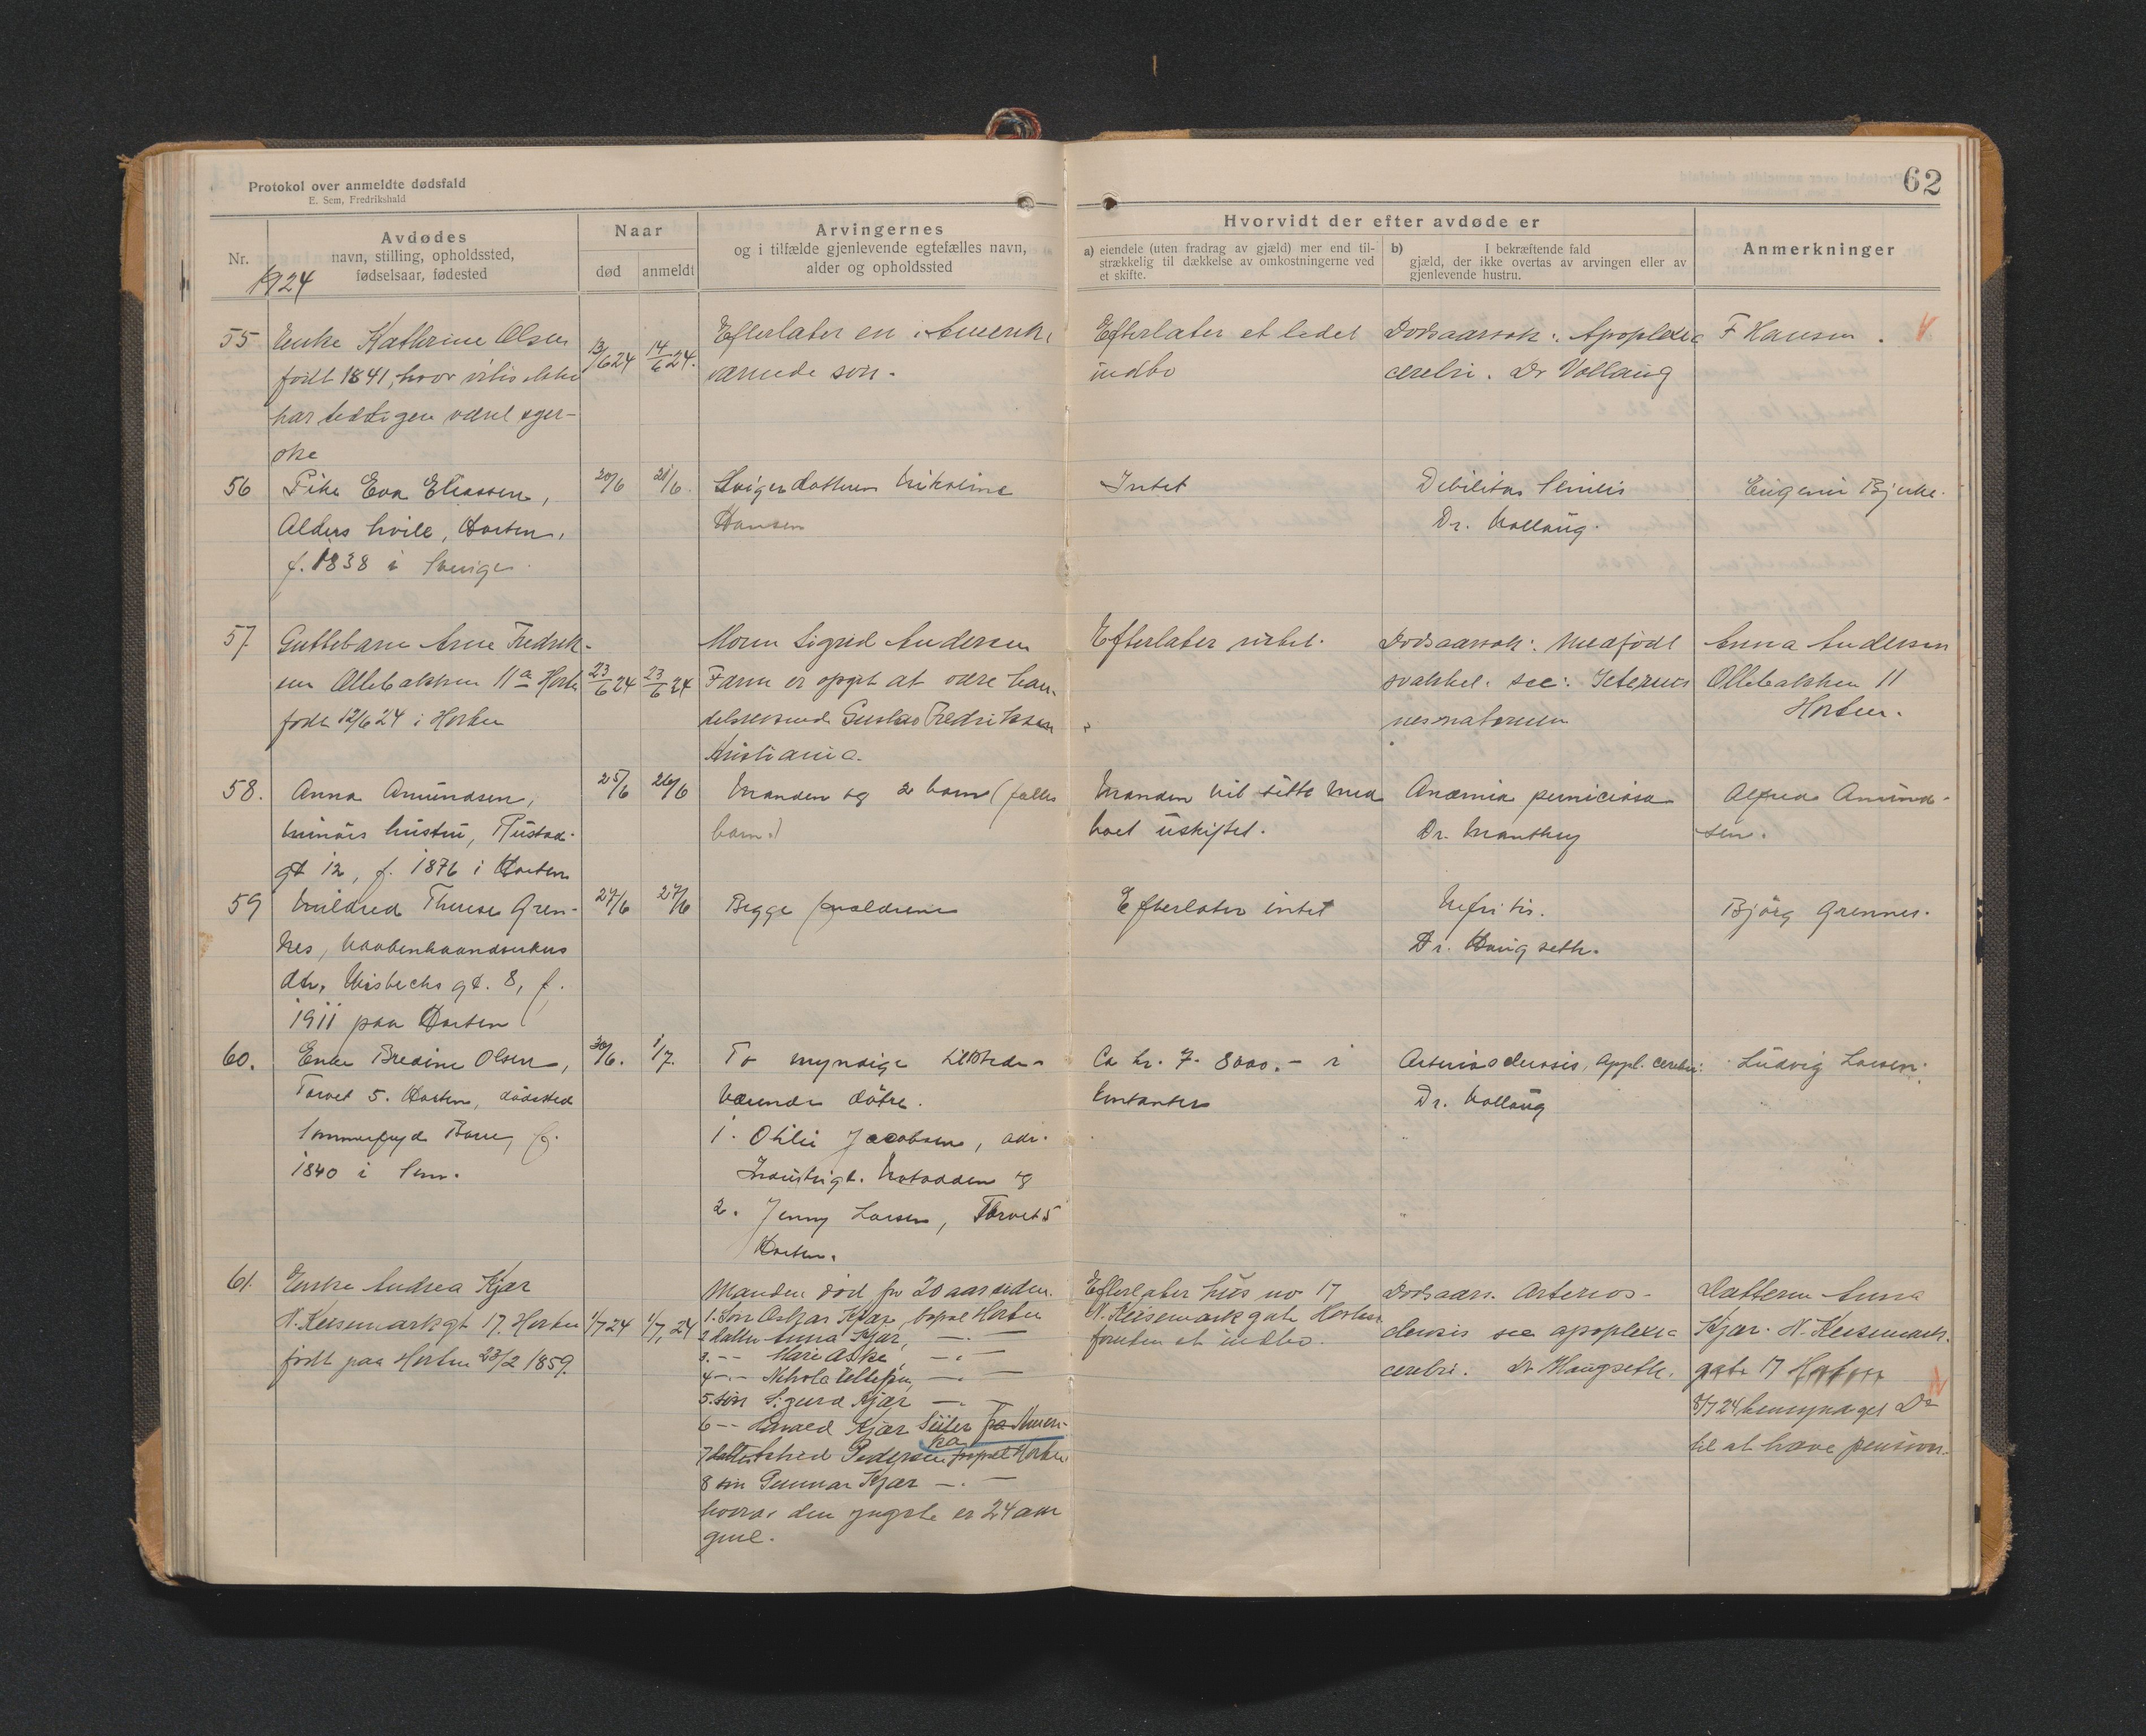 Protokol over anmeldte dødsfald
E. Sem, Fredrikshald
62
Nr.
1924
Avdødes
navn, stilling, opholdssted,
fødselsaar, fødested
Naar
død
anmeldt
Arvingernes
og i tilfælde gjenlevende egtefælles navn,
alder og opholdssted
Hvorvidt der efter avdøde er
a) eiendele (uten fradrag av gjæld) mer end til-
strækkelig til dækkelse av omkostningerne ved
et skifte.
b) I bekræftende fald
gjæld, der ikke overtas av arvingen eller av
gjenlevende hustru.
Anmerkninger
55
Enke Kathrine Olsen
født 1841, hvor vites ikke
har
være
13/6 24
14/6 24.
Efterlater en i Amerika
værende søn.
Efterlater et
indbo
Dødsaarsak: Apoplexia
cerebri. Dr Vollaug
F Hansen.
56
Pike Eva Eliassen,
Alders hvile, Horten,
f. 1838 i Sverige.
20/6
21/6.
Svigerdatteren
Hansen
Intet
Debilitas senilis
Dr. Vollaug.
Eugenie Bjerke.
57
Guttebarn Arne Fredrik-
sen Ollebakken 11a Horten
født 12/6 24 i Horten
23/6 24
23/6 24
Moren Sigrid Andersen
Faren er opgit at være han-
delsreisende Gustav Fredriksen
Kristiania.
Efterlater intet.
Dødsaarsak: Medfødt
svakhet. see: Icterus
neonatorum
Anna Andersen
Ollebakken 11
Horten.
58.
Anna Amundsen,
minørs hustru, Rustad-
gt 12, f. 1876 i Horten
25/6
26/6
Manden og 2 barn (fælles
barn.)
Manden vil sitte med
boet uskiftet.
Anæmia perniciosa
Dr. Manthey
Alfred Amund-
sen.
59
Mildred Therese Gren-
nes, vaabenhaandverkers
dtr, Misbechs gt. 8, f.
1911 paa Horten
27/6
27/6
Begge forældrene
Efterlater intet
Nefritis.
Dr. Haugseth.
Bjørg Grennes.
60.
Enke Bredine Olsen,
Torvet 5. Horten, dødssted
Sommerfryd Borre, f.
1840 i Sem.
30/6.
1/7.
To myndige tilstede-
værende døtre.
1. Otilie Jacobsen, adr.
Industrigt. Notodden og
2. Jenny Larsen, Torvet 5
Horten.
Ca kr. 7-8000.- i
kontanter
Arteriosclerosis, appl. cerebri.
Dr. Vollaug
Ludvig Larsen.
61.
Enke Andrea Kjær
N. Keisemarkgt 17. Horten
født paa Horten 23/2 1859.
1/7 24
1/7 24
Manden død for 20 aar siden.
1. Søn Oskar Kjær, bopæl Horten
2 datter Anna Kjær, -.-
3. -- Marie Aske, -.-
4 -.- Nikola Tellefsen, -.-
5. søn Sigurd Kjær -.-
6 -- Kjær Ameri-
ka
7 datter Pedersen bopæl Horten
8 søn Gunnar Kjær -.-
hvorav den yngste er 24 aar
gml.
Efterlater hus no 17
N. Keisemarkgate Horten
foruten et indbo.
Dødsaars. Arterios-
clerosis see apoplexia
cerebri. Dr Haugseth.
Datteren Anna
Kjær. N. Keisemark-
gate 17 Horten
8/7 24 bemyndiget Dr
til at hæve pension.